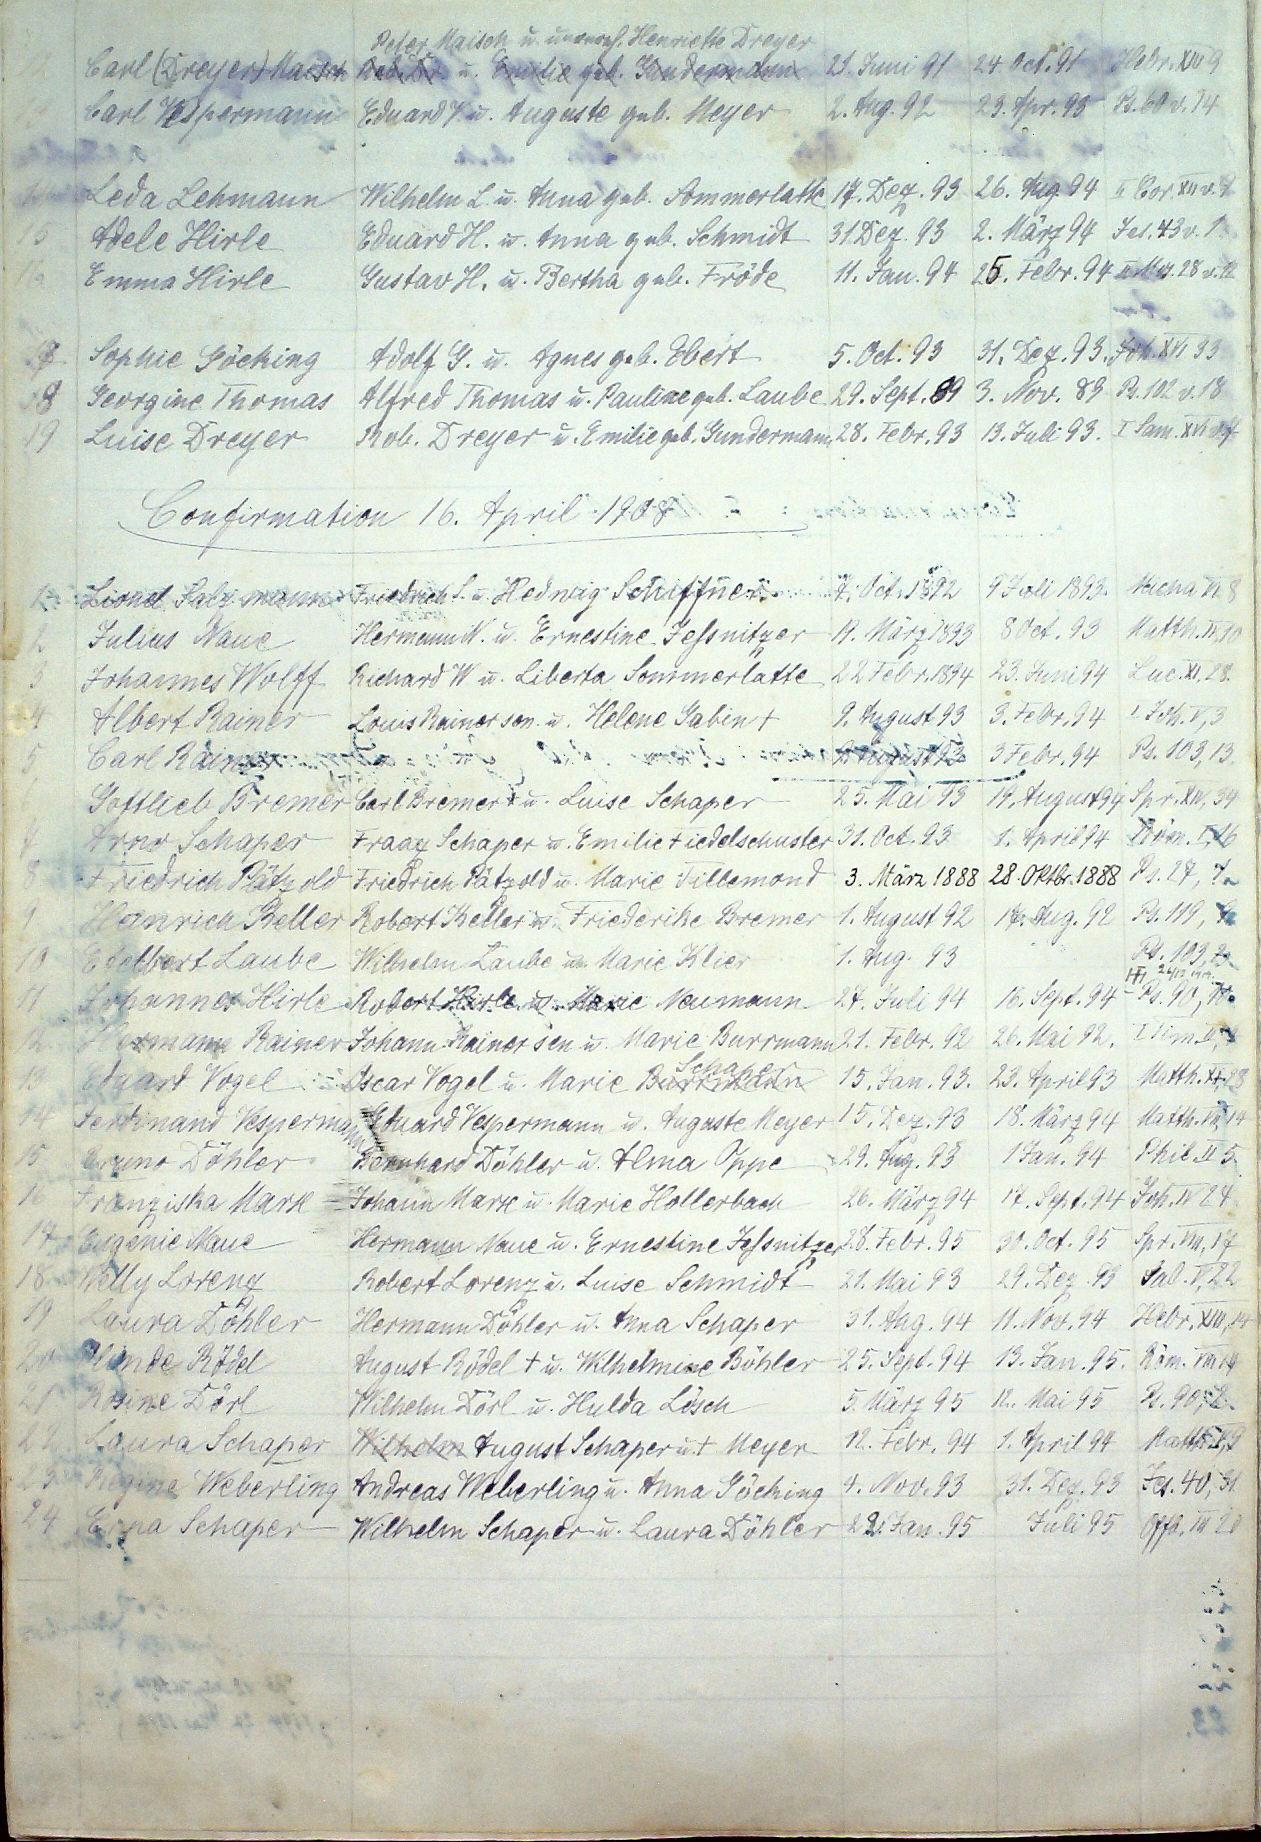 Peter Maisch u. unverh. Henriette Dreyer
Carl (Dreyer) Maisch Rob. Dr. u. Emilie geb. Gundermann 21. Juni 91 24. Oct. 91 Hebr. XIII 9
Carl Vespermann Eduard V. u. Auguste geb. Meyer 2. Aug. 92 23. Apr. 93 Ps. 60 v. 14
Leda Lehmann Wilhelm L. u. Anna geb. Sommerlatte 17. Dez. 93 26. Aug. 94 II Cor. XII v. 9
15 Adele Hirle Eduard H. u. Anna geb. Schmidt 31. Dez. 93 2. März 94 Jes. 43 v. 1
Emma Hirle Gustav H. u. Bertha geb. Fröde 11. Jan. 94 25. Febr. 94 28 v.
Sophie Göcking Adolf G. u. Agnes geb. Ebert 5. Oct. 93 31. Dez. 93. Joh. XVI 33
18 Georgine Thomas Alfred Thomas u. Pauline geb. Laube 29. Sept. 89 3. Nov. 89 Ps. 102 v. 18
19 Luise Dreyer Rob. Dreyer u. Emilie geb. Gundermann 28. Febr. 93 13. Juli 93. I Sam. XVI v. 7
Confirmation 16. April 1908
1 Lionel Salzmann Friedrich S. u. Hedwig Schiffner 7. Oct. 1892 9 Juli 1893. Micha VI 8
2 Julius Naue Hermann N. u. Ernestine Jessnitzer 19. März 1893 8 Oct. 93 Matth. IV, 10
3 Johannes Wolff Richard W. u. Liberta Sommerlatte 22 Febr. 1894 23. Juni 94 Luc. XI, 28.
4 Albert Rainer Louis Rainer sen. u. Helene Gabin + 9. August 93 3. Febr. 94 I Joh. V, 3
5 Carl Rainer August 93 3 Febr. 94 Ps. 103, 13.
Gottlieb Bremer Carl Bremer + u. Luise Schaper 25. Mai 93 19. August 94 Spr. XIV, 34
7 Arno Schaper Franz Schaper u. Emilie Fiedelschuster 31. Oct. 93 1. April 94 Röm. I, 16
8 Friedrich Pätzold Friedrich Pätzold u. Marie Tillemond 3. März 1888 28. Oktbr. 1888 Ps. 27, 1.
9 Heinrich Keller Robert Keller u. Friederike Bremer 1. August 92 14. Aug. 92 Ps. 119, 9
10 Edelbert Laube Wilhelm Laube u. Marie Klier 1. Aug. 93 Ps. 103, 2.
11 Johannes Hirle Robert Hirle u. Marie Neumann 27. Juli 94 16. Sept. 94 Ps. 90,
12 Hermann Rainer Johann Rainer sen u. Marie Burrmann 21. Febr. 92 26. Mai 92. I Tim.
Schaper
13 Eduard Vogel Oscar Vogel u. Marie Burrmann 15. Jan. 93. 23. April 93 Matth. XI, 28
14 Ferdinand Vespermann Eduard Vespermann u. Auguste Meyer 15. Dez. 93 18. März 94 Matth. VII, 14
15 Bruno Döhler Bernhard Döhler u. Alma Oppe 29. Aug. 93 1 Jan. 94 Phil. II 5.
16 Franziska Marx Johann Marx u. Marie Hollerbach 26. März 94 17. Sept. 94 Joh. IV 24
17 Eugenie Naue Hermann Naue u. Ernestine Jessnitzer 28. Febr. 95 30. Oct. 95 Spr. VIII, 17
18 Nelly Lorenz Robert Lorenz u. Luise Schmidt 21. Mai 93 29. Dez. 93 Gal. V, 22
19 Laura Döhler Hermann Döhler u. Anna Schaper 31. Aug. 94 11. Nov. 94 Hebr. XIII, 14
20 Rödel August Rödel + u. Wilhelmine Böhler 25. Sept. 94 13. Jan. 95. Röm. VIII 14
21 Rosine Dörl Wilhelm Dörl u. Hulda Lösch 5. März 95 12. Mai 95 Ps. 90,
22 Laura Schaper Wilhelm August Schaper u. + Meyer 12. Febr. 94 1. April 94 Matth. V, 9
23 Regine Weberling Andreas Weberling u. Anna Göcking 4. Nov. 93 31. Dez. 93 Jes. 40, 31
24 Erna Schaper Wilhelm Schaper u. Laura Döhler 22. Jan. 95 Juli 95 Offb. III 20